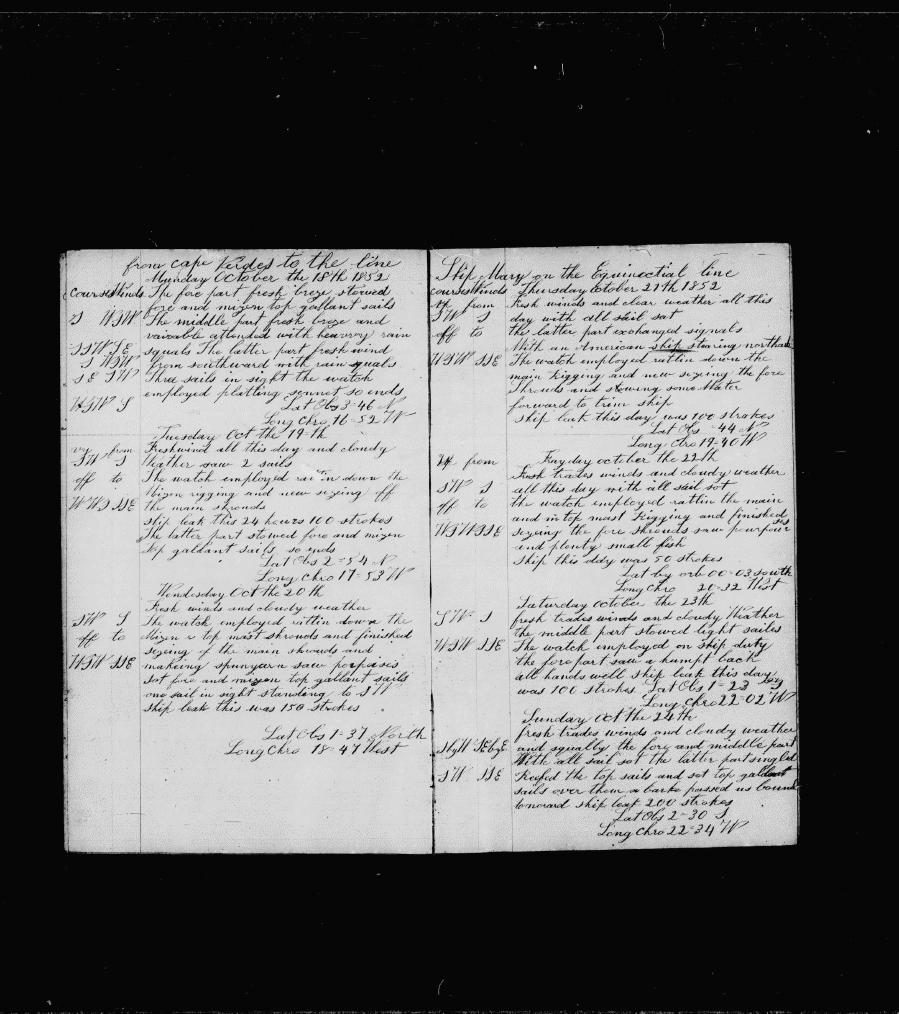 from cape Verdes to the line
Munday October the 18th 1852
courses Winds The fore part fresh breze stowed
fore and mizen top gallant sails
S WSW The middle part fresh breze and
vaireable attended with heavvy rain
SSW SE squals The latter part fresh wind
S WSW from southward with rain squals
SE SW Three sails in sight the watch
employed platting sennet so ends
WSW S Lat Obs 3=46 N
Long Chro 16=52 W
Tuesday Oct the 19-th
from Fresh wind all this day and cloudy
SW S Weather saw 2 sails
off to The watch employed in down the
Mizen rigging and new sezing off
SSE the main shrouds
ship leak this 24 hours 100 strokes
The latter part stowed fore and mizen
top galdant sails, so ends
Lat Obs 2=54 N
Long Chro 17=53 W
Wendesday Oct the 20th
Fresh winds and cloudy weather
SW S The watch employed ratlin down the
off to Mizen & top mast shrouds and finished
sezeing of the main shrouds and
WSW SSE makeing spunyarn saw porpoises
sot fore and mizen top gallant sails
one sail in sight standing to SW
ship leak this was 150 strokes
Lat Obs 1=37 North
Long Chro 18=47 West
Ship Mary on the Equinoctial line
courses Winds Thursday October 21th 1852
from Fresh winds and clear weather all this
SW S day with all sail sat
off to the latter part exchanged signals
With an American ship staring northard
WSW SSE The watch employed ratlin down the
main Rigging and new sezing the fore
Shrouds and stowing some Water
forward to trim ship
ship leak this day was 100 strokes
Lat Obs =44 N
Long Chro 19=40 W
from Fryday october the 22th
Fresh trades winds and cloudy weather
SW S all this day with all sail sot
off to the watch employed ratlin the main
and top mast Rigging and finished
WSW SSE sezeing the fore shrouds saw
and plenty small fish
ship this day was 50 strokes
Lat by orb 00=03 south
Long Chro 20=32 West
Saturday October the 23th
SW S fresh trades winds and cloudy Weather
the middle part stowed light sailes
WSW SSE The watch employed on ship duty
the fore part saw a humpt back
all hands well ship leak this day
was 100 strokes Lat Obs 1=23 S
Long Chro 22=02 W
Sunday Oct the 24th
fresh trades winds and cloudy weather
SbyW SEbyE and squally the fore and middle part
With all sail sot the latter part
SW SSE Reefed the top sails and sot top galdant
sails over them a barke passed us bound
ship leak 200 strokes
Lat Obs 2=30 S
Long Chro 22=34 W